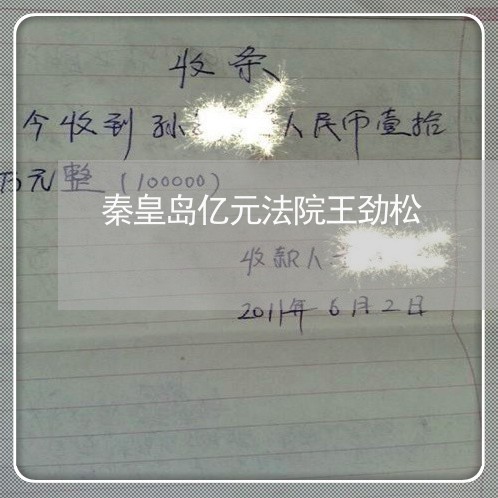 收条
今收到孙 人民币壹拾
万元整（100000）
秦皇岛亿元法院王劲松
收款人
2011年6月2日